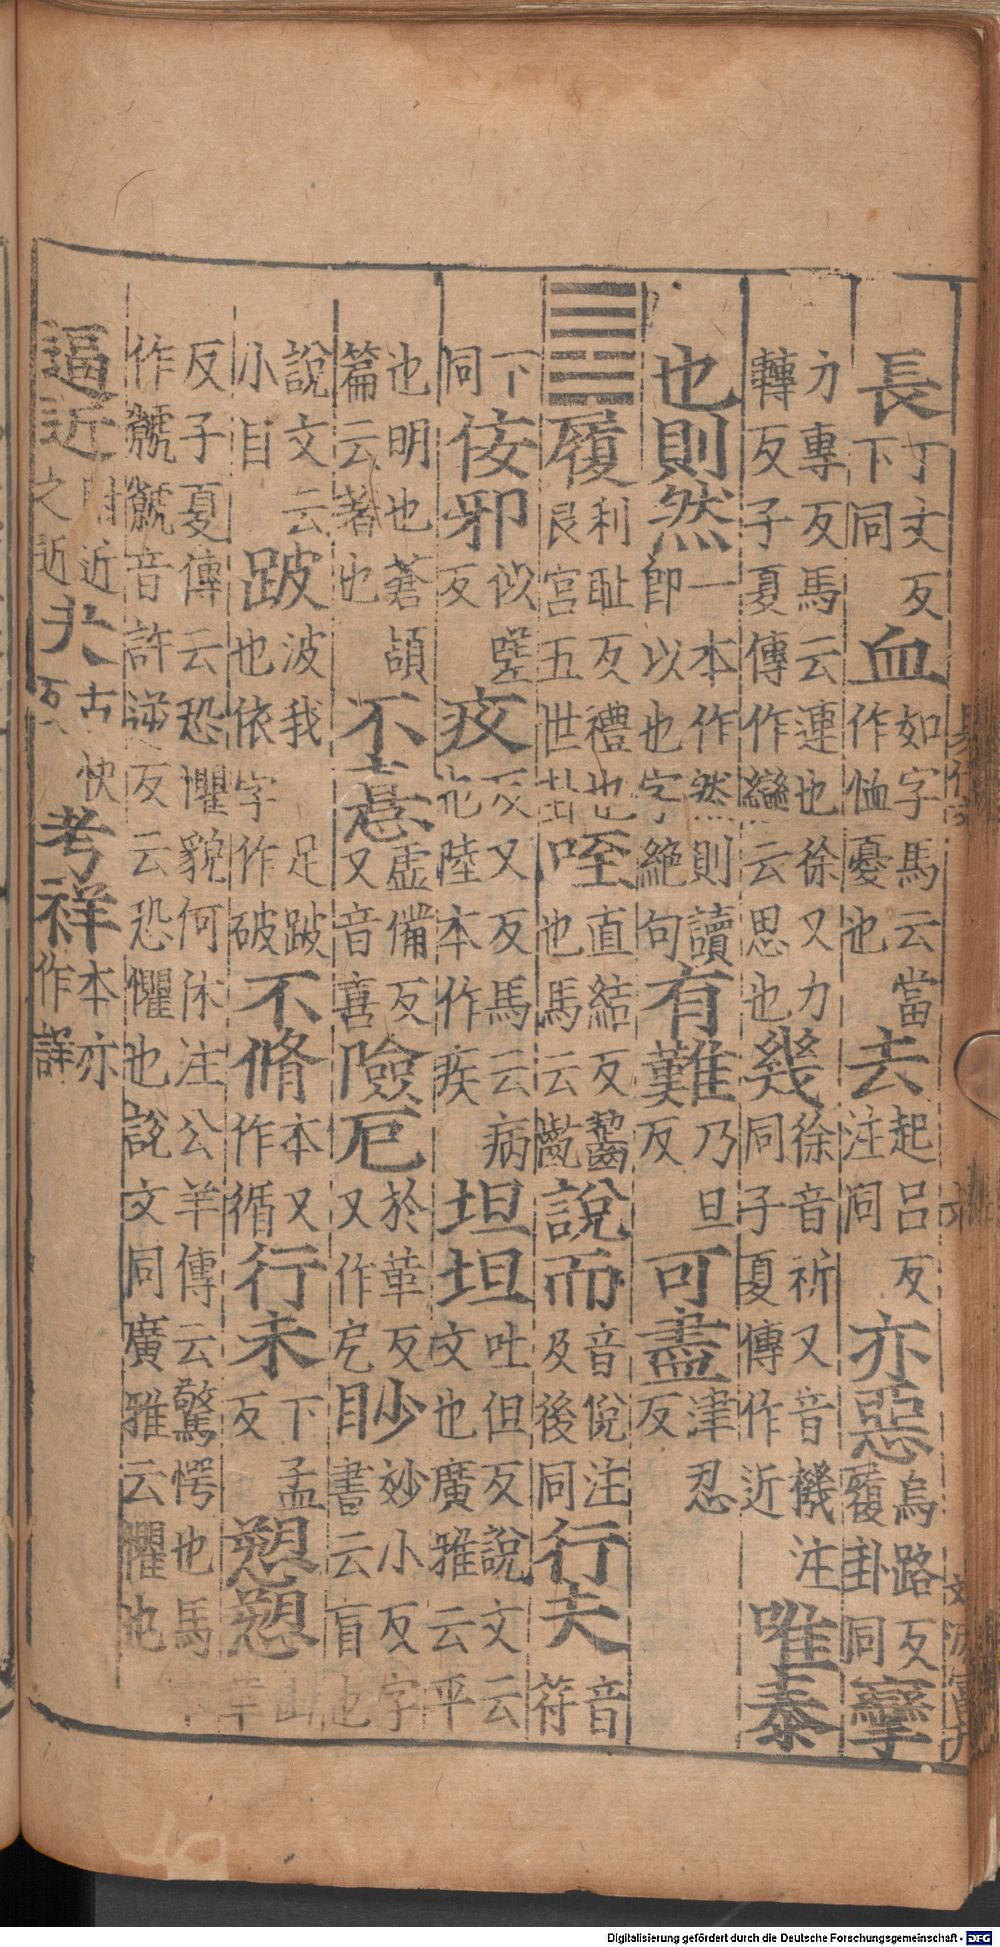 長丁文反下同血如字馬云當作恤憂也去起呂反注同亦惡烏路反履卦同攣
力專反馬云連也徐又力轉反子夏傳作戀云思也幾徐音祈又音機注同子夏傳作近唯泰
也則然一本作然則讀即以也字絕句有難乃旦反可盡津忍反
䷉履利恥反禮也艮宮五世卦咥直結反齧也馬云齕說而音悅注及後同行夫音符
下同佞邪似嗟反疚又反馬云病也陸本作疾坦坦吐但反說文云文也廣雅云平
也明也蒼頡篇云著也不憙虛備反又音喜險厄於革反又作戹眇妙小反字書云盲也
說文云小目跛波我反足跛也依字作破不脩本又作循行未下孟反愬愬山革
反子夏傳云恐懼貌何休注公羊傳云驚愕也馬本作虩虩音許逆反云恐懼也說文同廣雅云懼也
逼近附近之近夬古快反考祥本亦作詳
Digitalisierung gefördert durch die Deutsche Forschungsgemeinschaft - DFG